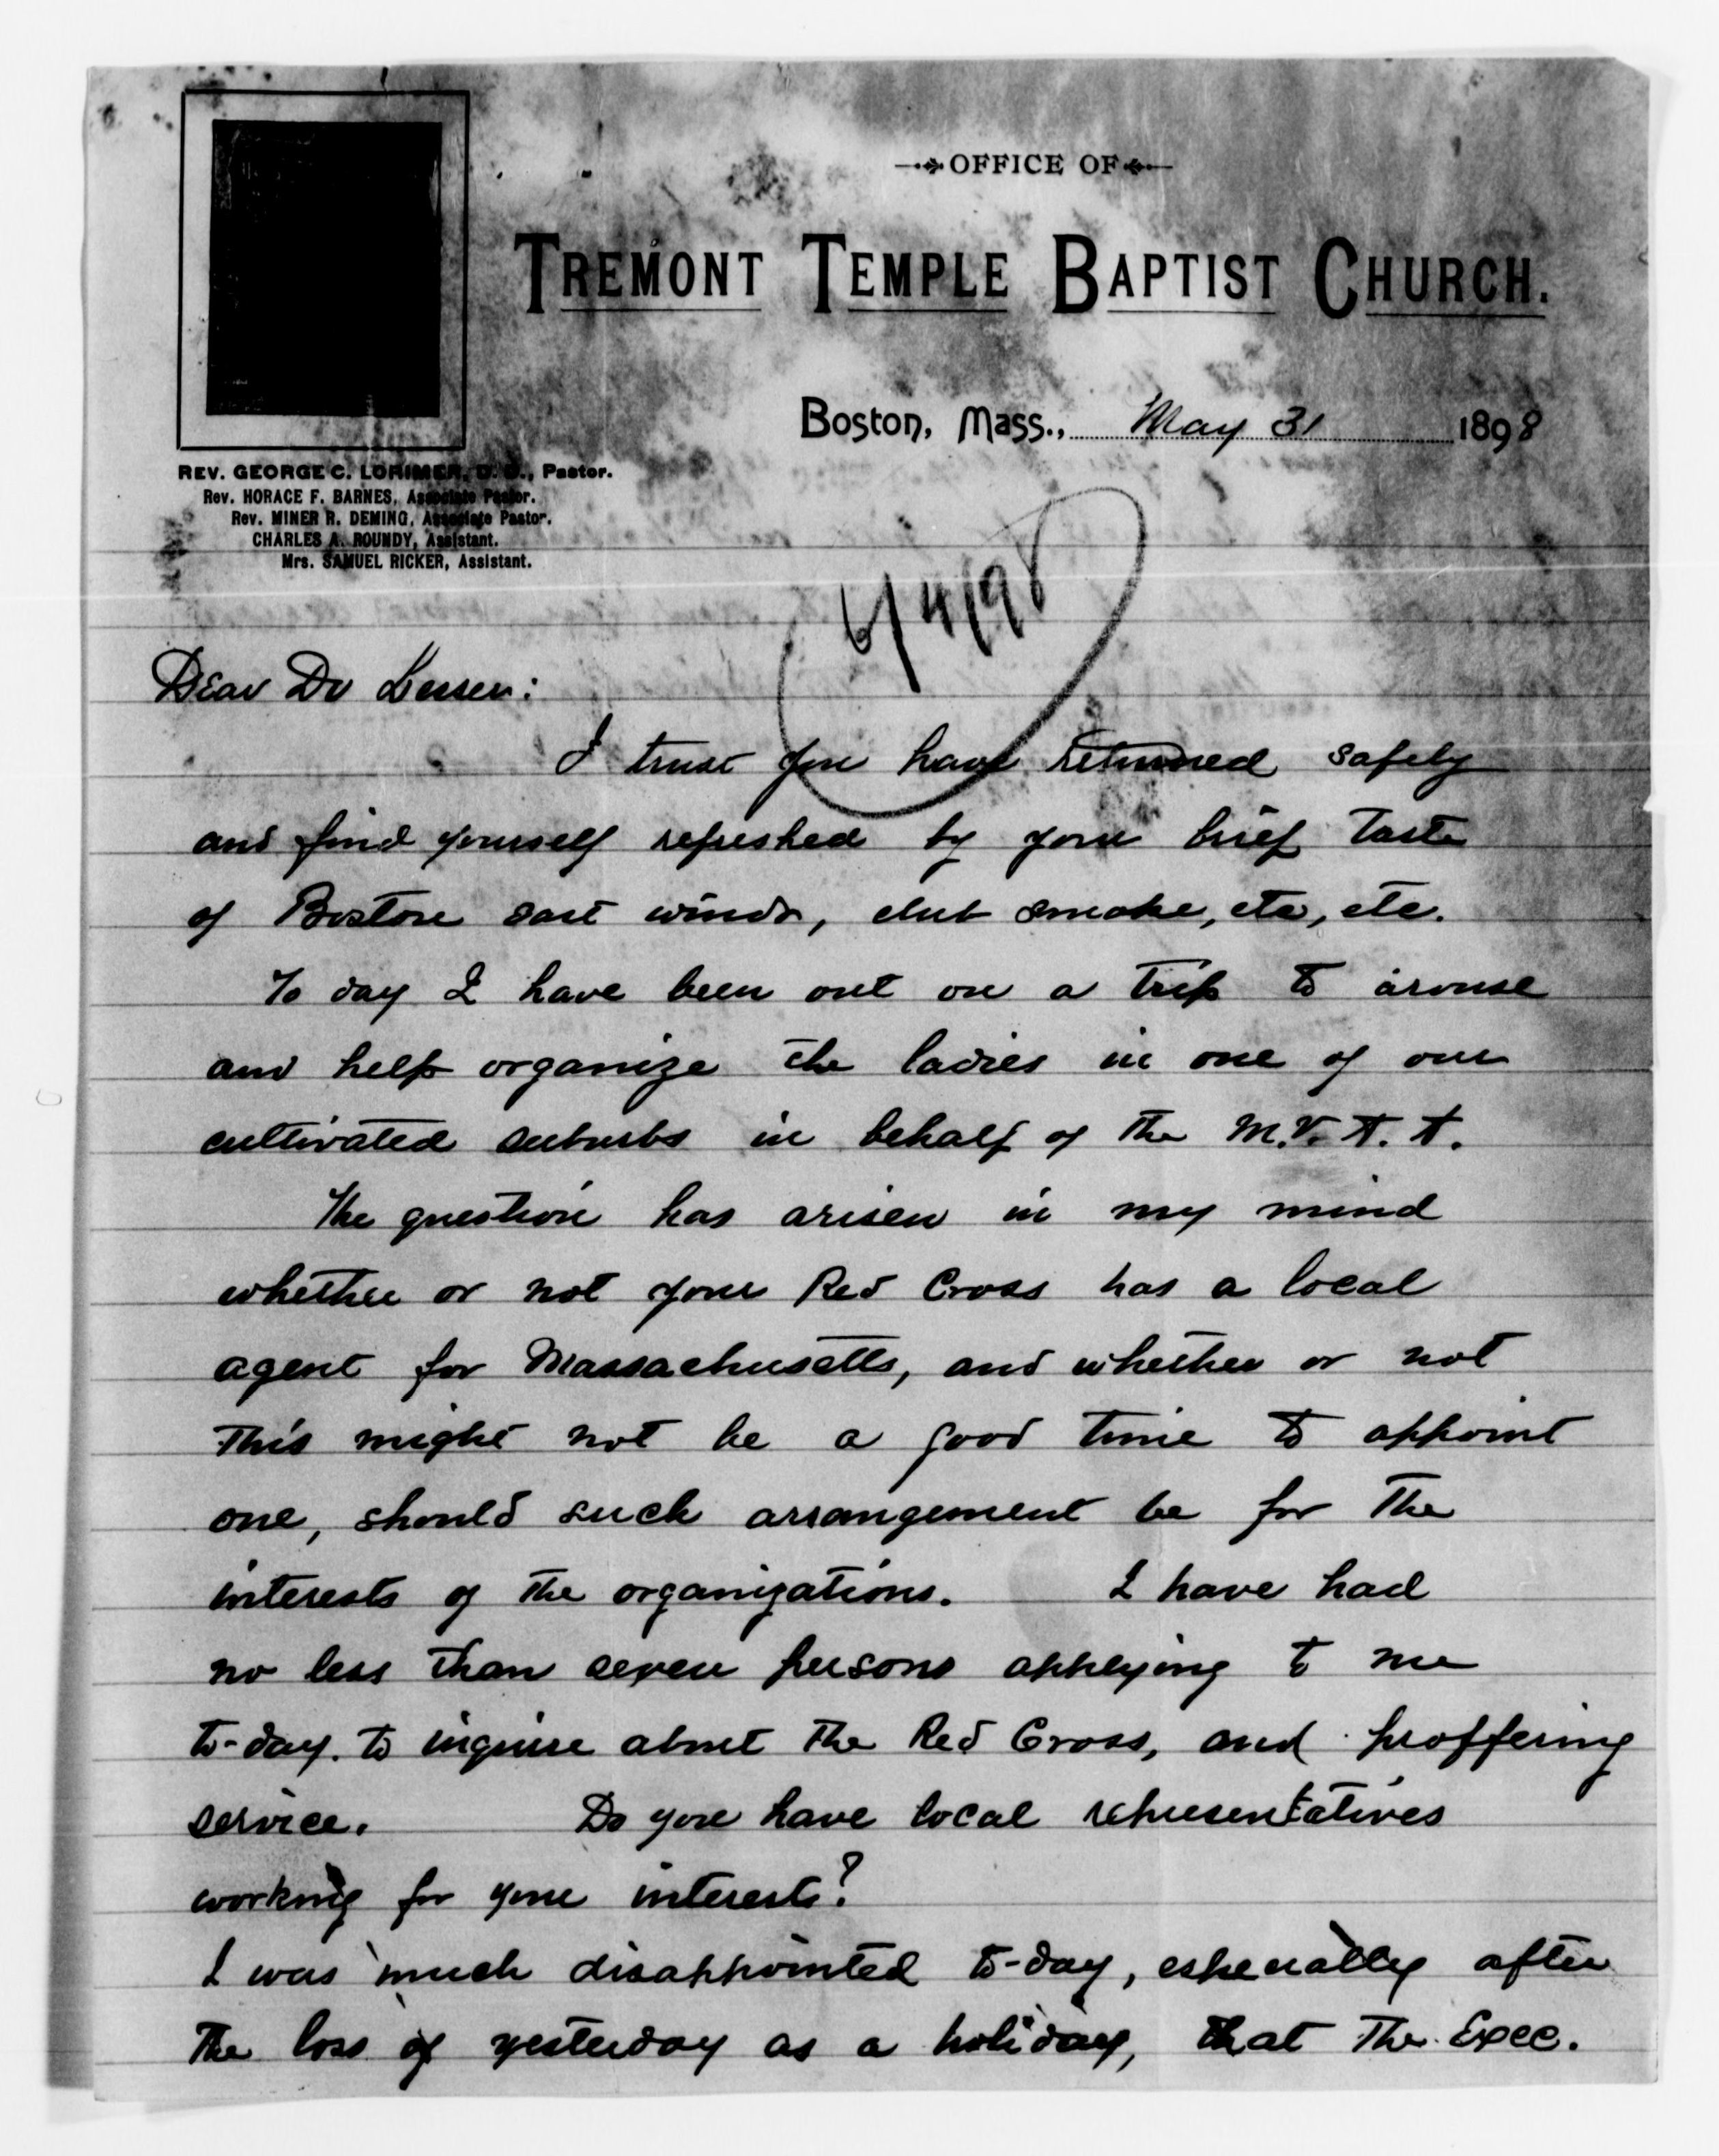 OFFICE OF
TREMONT TEMPLE BAPTIST CHURCH.
Boston, Mass., May 31 1898
REV. GEORGE C. LORIMER, D. D., Pastor.
Rev. HORACE F. BARNES, Associate Pastor.
Rev. MINER R. DEMING, Associate Pastor.
CHARLES A. ROUNDY, Assistant.
Mrs. SAMUEL RICKER, Assistant.
6/4/98
Dear Dr Lesser:
I trust you have returned safely
and find yourself refreshed by your brief taste
of Boston east winds, club smoke, etc, etc.
To day I have been out on a trip to arouse
and help organize the ladies in one of our
cultivated suburbs in behalf of the M.V.A.A.
The question has arisen in my mind
whether or not your Red Cross has a local
agent for Massachusetts, and whether or not
this might not be a good time to appoint
one, should such arrangement be for the
interests of the organizations. I have had
no less than seven persons applying to me
to-day to inquire about the Red Cross, and proffering
service. Do you have local representatives
working for your interests?
I was much disappointed to-day, especially after
the loss of yesterday as a holiday, that the Exec.